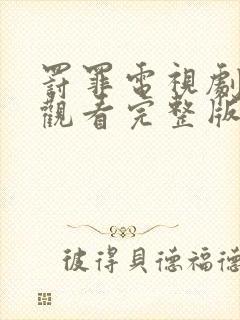 罸罪電視劇
觀看完整版
彼得貝德福德